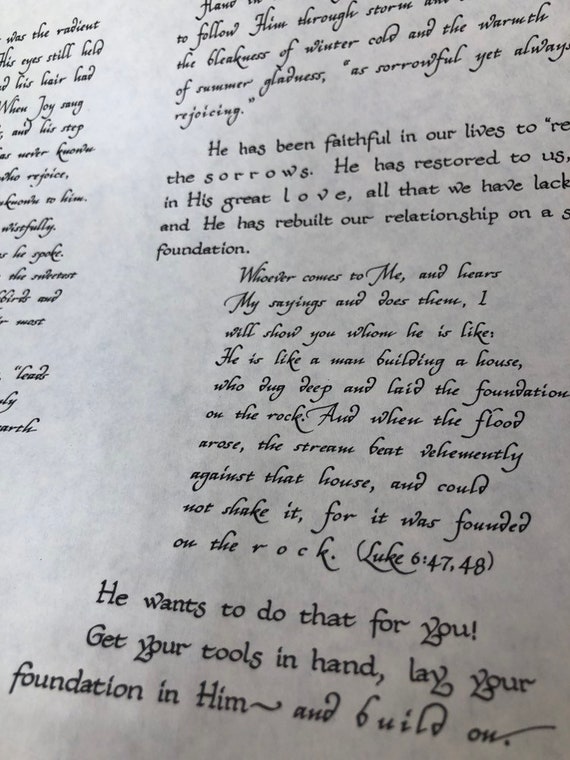 was the radient
His eyes still held
his hair had
When Joy sang
and his step
has never known
who rejoice,
unknown to him.
wistfully.
as he spoke.
the sweetest
birds and
most
"leads
earth
Hand in
to follow Him through storm and
the bleakness of winter cold and the warmth
of summer gladness, "as sorrowful yet always
rejoicing."
He has been faithful in our lives to "re
the s o r r o w s. He has restored to us,
in His great l o v e, all that we have lack
and He has rebuilt our relationship on a s
foundation.
Whoever comes to Me, and hears
My sayings and does them, I
will show you whom he is like:
He is like a man building a house,
who dug deep and laid the foundation
on the rock. And when the flood
arose, the stream beat vehemently
against that house, and could
not shake it, for it was founded
on the r o c k. (Luke 6:47, 48)
He wants to do that for you!
Get your tools in hand, lay your
foundation in Him~ and b u i l d on.